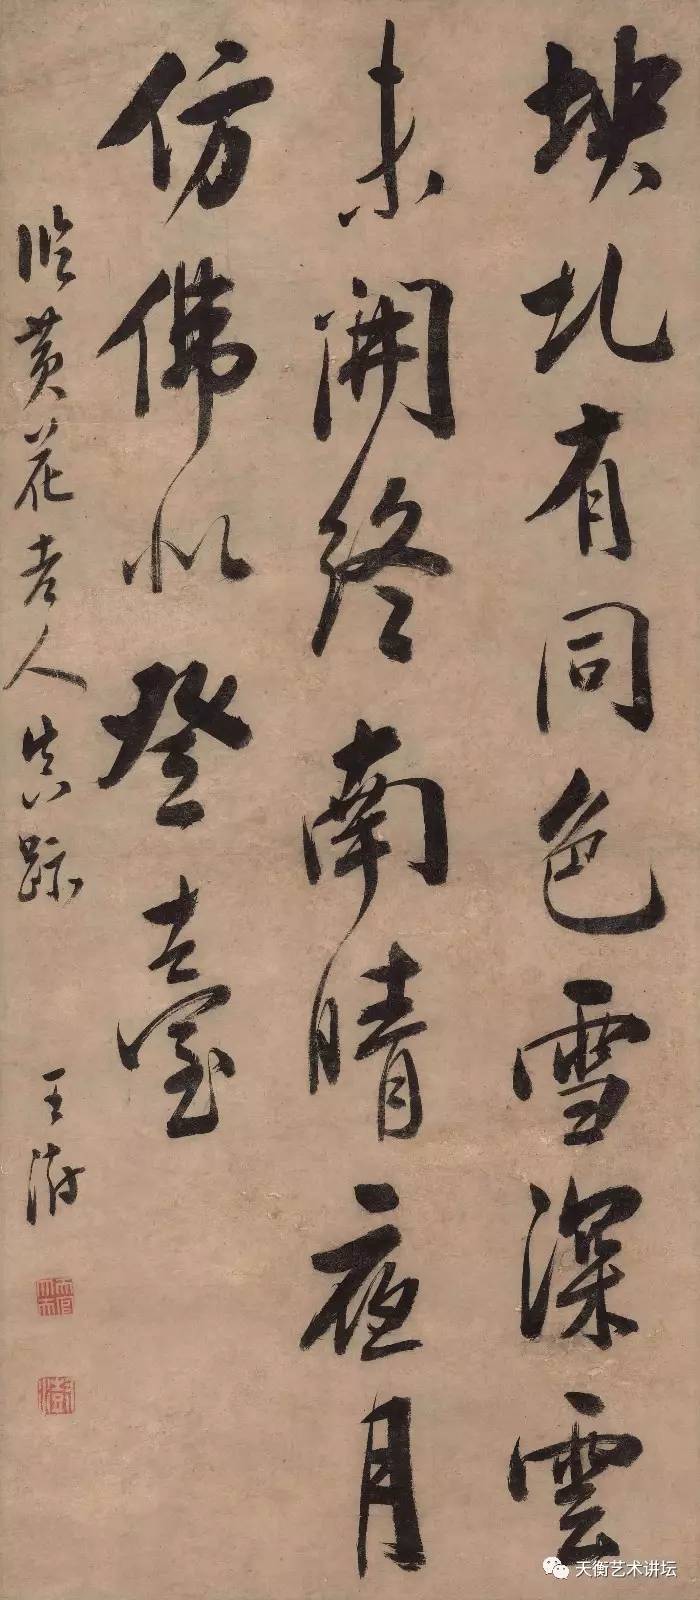 坱圠有同色雪深雲
未開終南晴夜月
仿佛似登臺
臨黃花老人真跡
王澍
天衡艺术讲坛